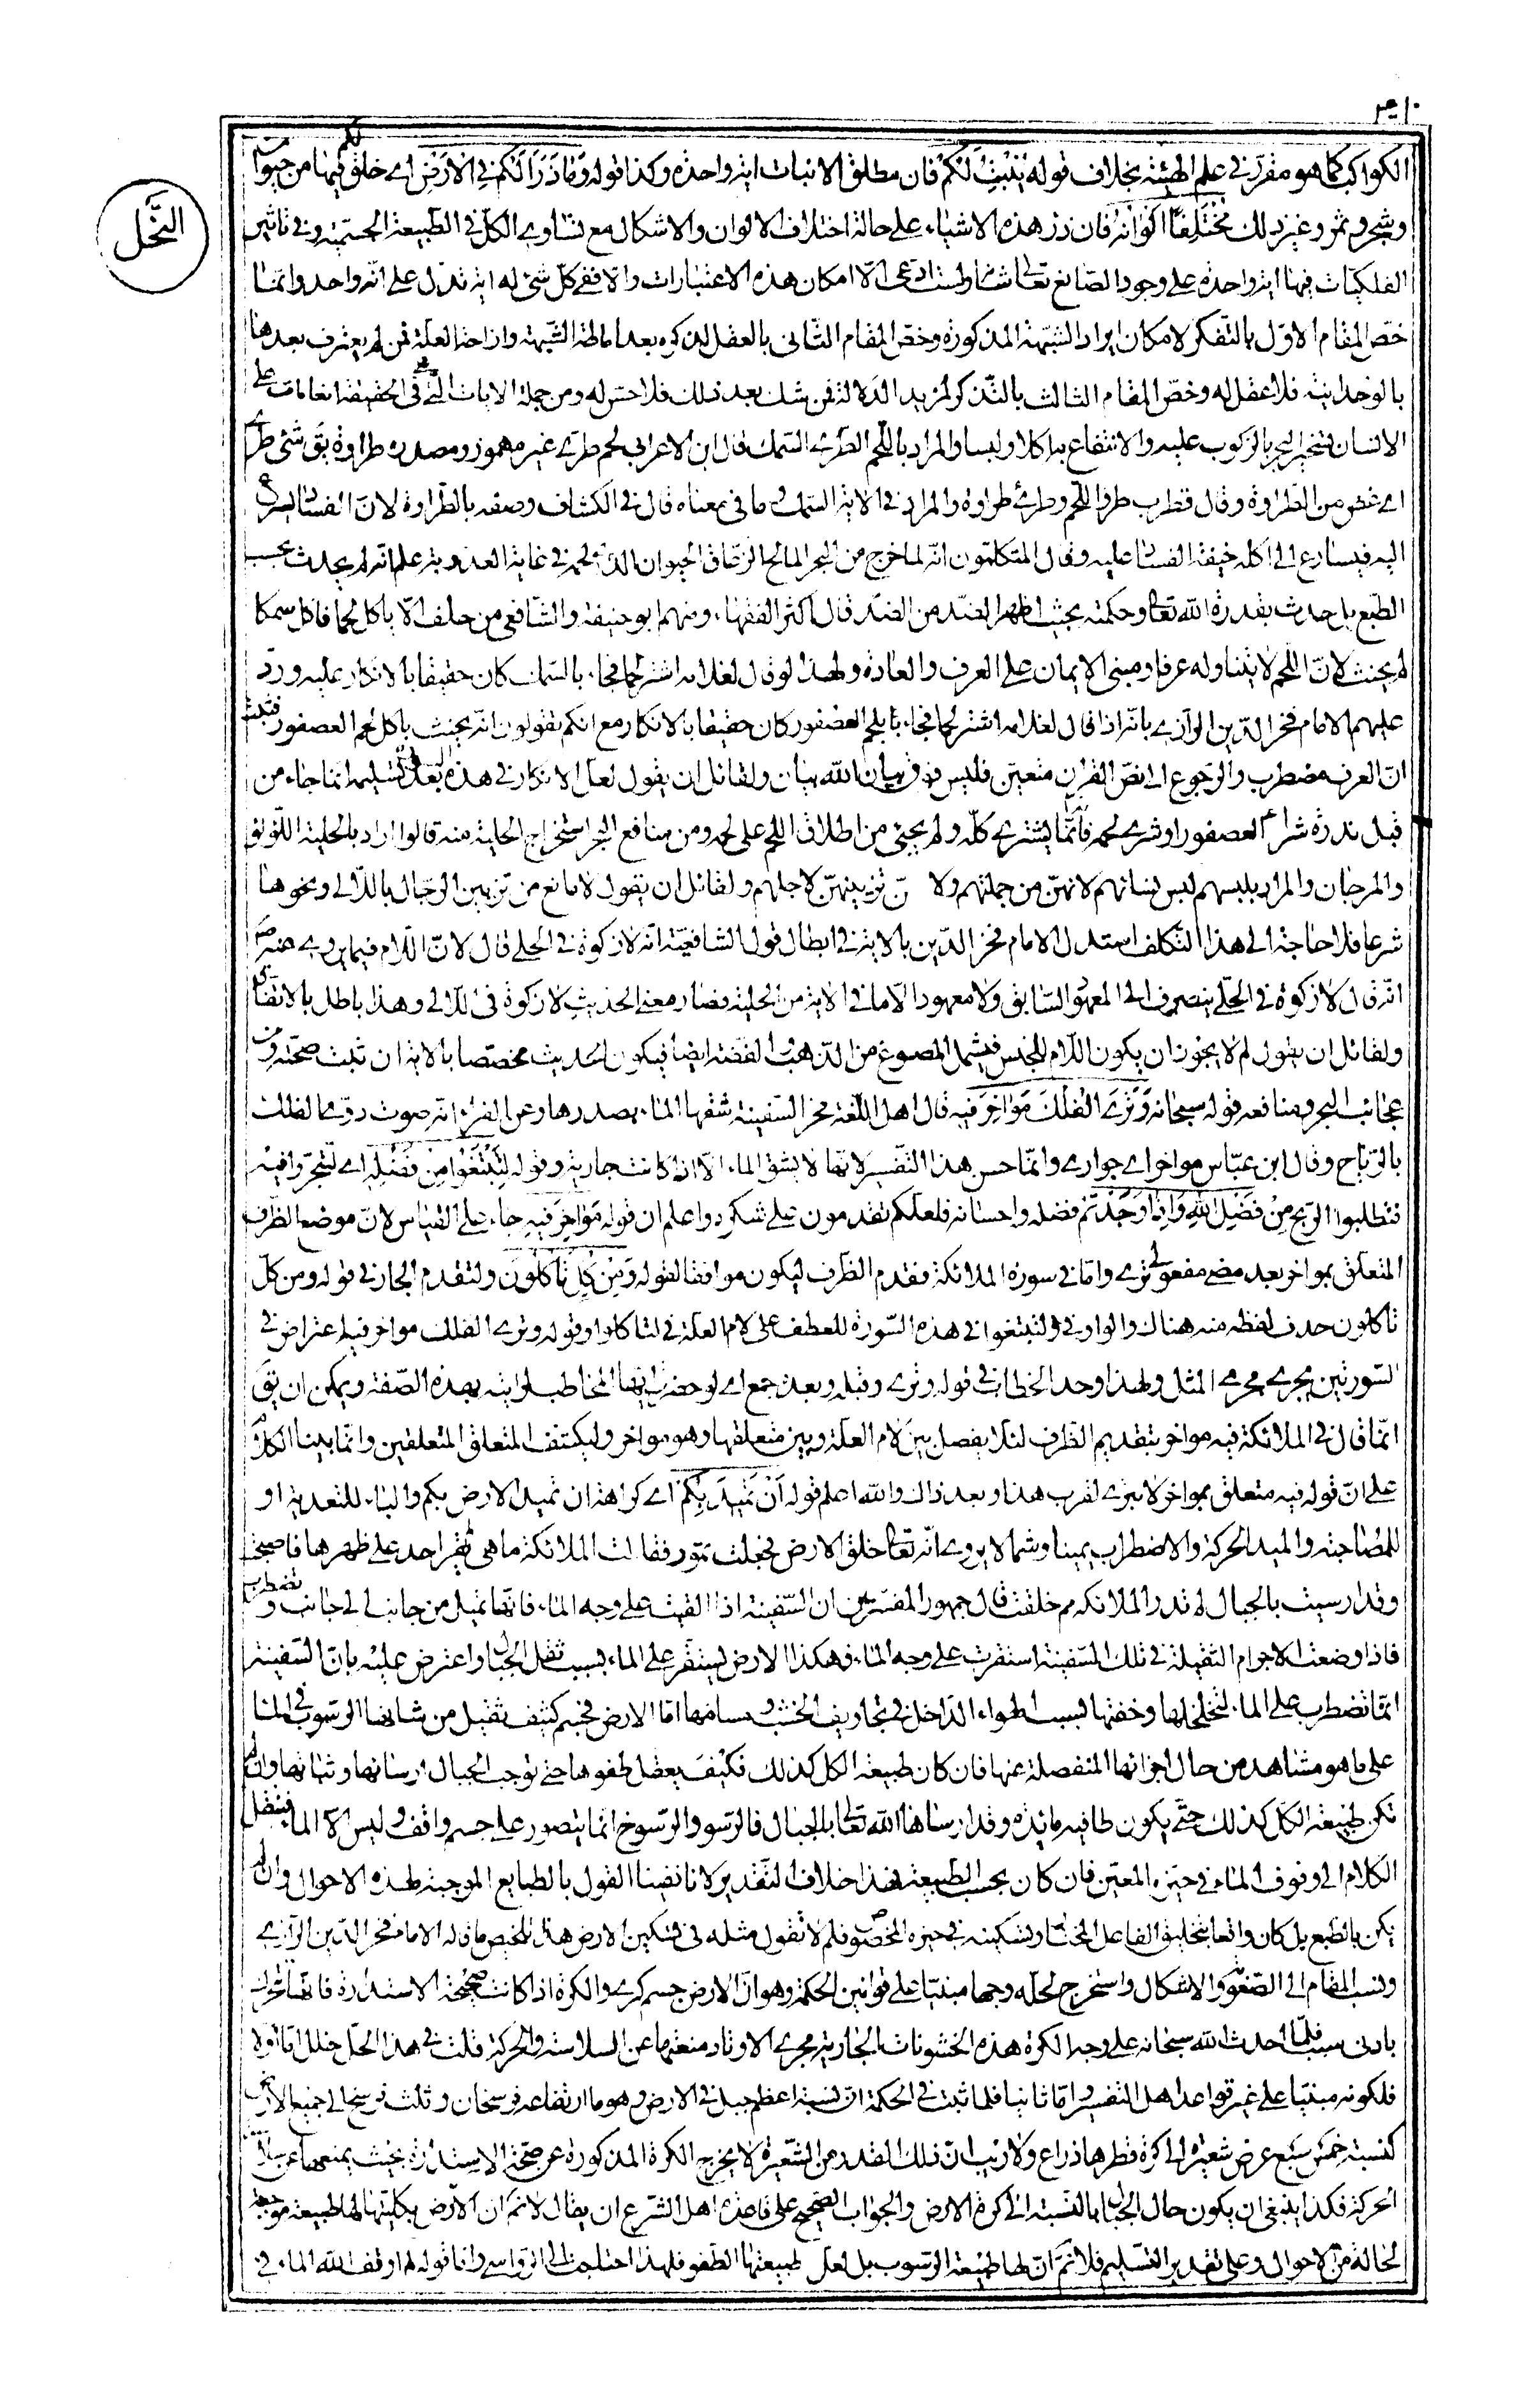 النَّحل
الكواكب كما هو مقرر في علم الهيئة بخلاف قوله يُنْبِتُ لَكُمْ فان مطلق الانبات اية واحدة وكذا قوله وَمَا ذَرَأَ لَكُمْ فِي الْاَرْضِ اي خلق لكم فيها من حيوان
وشجر وثمر وغير ذلك مُخْتَلِفًا اَلْوَانُهُ فان ذرء هذه الاشياء على حالة اختلاف الالوان والاشكال مع تساوي الكل في الطبيعة الجسمية وفي تاثير
الفلكيات فيها اية واحدة على وجود الصانع تعالى شانه ولست ادعى الا امكان هذه الاعتبارات والا ففي كل شئ له اية تدل على انه واحد وانما
خص المقام الاول بالتفكر لامكان ايراد الشبهة المذكورة وخص المقام الثانى بالعقل لذكره بعد اماطة الشبهة وازاحة العلة فمن لم يعترف بعدها
بالوحدانية فلا عقل له وخص المقام الثالث بالتذكر لمزيد الدلالة فمن شك بعد ذلك فلا حس له ومن جملة الايات التي هي في الحقيقة انعامات على
الانسان تسخير البحر بالركوب عليه والانتفاع به اكلا ولبسا والمراد باللحم الطري السمك قال ابن الاعرابي لحم طري غير مهموز ومصدره طراوة يق شئ طري
اي غض من الطراوة وقال قطرب طرو اللحم وطري طراوة والمراد في الاية السمك وما في معناه قال في الكشاف وصفه بالطراوة لان الفساد يسرع
اليه فيسارع الى اكله خيفة الفساد عليه وقال المتكلمون انه لما خرج من البحر المالح الزعاق الحيوان الذي لحمه في غاية العذوبة علم انه لم يحدث بحسب
الطبع بل حدث بقدرة الله تعالى وحكمته بحيث اظهر الضد من الضد قال اكثر الفقهاء ومنهم ابو حنيفة والشافعي من حلف الا ياكل لحما فاكل سمكا
لم يحنث لان اللحم لا يتناوله عرفا ومبنى الايمان على العرف والعادة ولهذا لو قال لغلامه اشتر لحما فجاء بالسمك كان حقيقا بالانكار عليه ورد
عليهم الامام فخر الدين الرازي بانه اذا قال لغلامه اشتر لحما فجاء بلحم العصفور كان حقيقا بالانكار مع انكم تقولون انه يحنث باكل لحم العصفور فثبت
ان العرف مضطرب والرجوع الى نص القران متعين فليس فوق بيان الله بيان ولقائل ان يقول لعل الانكار في هذه بعد تسليمه انما جاء من
قبل ندرة شراء العصفور او شرى لحمه فانما يشترى كله ولم يجئ من اطلاق اللحم على لحمه ومن منافع البحر استخراج الحلية منه قالوا اراد بالحلية اللؤلؤ
والمرجان والمراد بلبسهم لبس نسائهم لانهن من جملتهم ولا ن تزيينهن لاجلهم ولقائل ان يقول لا مانع من تزيين الرجال باللالي ونحوها
شرعا فلا حاجة الى هذا التكلف استدل الامام فخر الدين بالاية في ابطال قول الشافعية انه لا زكوة في الحلي قال لان اللام فيما يروى عنه ص
انه قال لا زكوة في الحلي ينصرف الى المعهود السابق ولا معهود الا ما في الاية من الحلية فصار معنى الحديث لا زكوة في اللالي وهذا باطل بالاتفاق
ولقائل ان يقول لم لا يجوز ان يكون اللام للجنس فيشمل المصوغ من الذهب والفضة ايضا فيكون الحديث مخصصا بالاية ان ثبت صحته ومن
عجائب البحر ومنافعه قوله سبحانه وَتَرَى الْفُلْكَ مَوَاخِرَ فِيهِ قال اهل اللغة مخر السفينة شقها الماء بصدرها وعن الفراء انه صوت دوي الفلك
بالرياح وقال ابن عباس مواخر اي جواري وانما حسن هذا التفسير لانها لا يشق الماء الا اذا كانت جارية وقوله لِتَبْتَغُوا مِنْ فَضْلِهِ اي لتتجروا فيه
فتطلبوا الربح مِنْ فَضْلِ اللهِ وَاِذَا وَجَدْتُم فضله واحسانه فلعلكم تقدمون على شكره واعلم ان قوله مَوَاخِرَ فِيهِ جاء على القياس لان موضع الظرف
المتعلق بمواخر بعد مضى مفعولى ترى واما في سورة الملائكة فقدم الظرف ليكون موافقا لقوله وَمِنْ كُلٍّ تَاْكُلُونَ ولتقدم الجار في قوله ومن كل
تاكلون حذف لفظة منه هناك والواو في ولتبتغوا في هذه السورة للعطف على لام العلة في لتاكلوا وقوله وترى الفلك مواخر فيه اعتراض في
السورتين يجري مجرى المثل ولهذا وحد الخطاب في قوله وترى وقبله وبعده جمع اي لو حضرت ايها المخاطب لرايته بهذه الصفة ويمكن ان يق
انما قال في الملائكة فيه مواخر بتقديم الظرف لئلا يفصل بين لام العلة وبين متعلقها وهو مواخر وليكتنف المتعلق المتعلقين وانما بنينا الكلام
على ان قوله فيه متعلق بمواخر لا بترى لقرب هذا وبعد ذاك والله اعلم قوله اَنْ تَمِيدَ بِكُمْ اي كراهة ان تميد الارض بكم والباء للتعدية او
للمصاحبة والميد الحركة والاضطراب يمينا وشمالا يروى انه تعالى خلق الارض فجعلت تمور فقالت الملائكة ما هي بمقر احد على ظهرها فاصبحت
وقد ارسيت بالجبال لم تدر الملائكة مم خلقت قال جمهور المفسرين ان السفينة اذا القيت على وجه الماء فانها تميل من جانب الى جانب وتضطرب
فاذا وضعت الاجرام الثقيلة في تلك السفينة استقرت على وجه الماء فهكذا الارض يستقر على الماء بسبب ثقل الجبال واعترض عليه بان السفينة
انما تضطرب على الماء لتخلخلها وخفتها بسبب الهواء الداخل في تجاويف الخشب ومسامها اما الارض فجسم كثيف ثقيل من شانها الرسوب في الماء
على ما هو مشاهد من حال اجزائها المنفصلة عنها فان كان طبيعة الكل كذلك فكيف يعقل طفوها حتى توجب الجبال ارساءها وثباتها وان لم
تكن طبيعة الكل كذلك حتى يكون طافية مائدة وقد ارساها الله تعالى بالجبال فالرسو والرسوخ انما يتصور على جسم واقف وليس الا الماء فينتقل
الكلام الى وقوف الماء في حيزه المعين فان كان بحسب الطبيعة فهذا خلاف التقدير لانا نفينا القول بالطبايع الموجبة لهذه الاحوال وان لم
يكن بالطبع بل كان واقعا بتخليق الفاعل المختار وتسكينه في حيزه المخصوص فلم لا تقول مثله في تسكين الارض هذا تلخيص ما قاله الامام فخر الدين الرازي
ونسب المقام الى الصعوبة والاشكال واستخرج لحله وجها مبنيا على قوانين الحكمة وهو ان الارض جسم كري والكرة اذا كانت صحيحة الاستدارة فانها تتحرك
بادنى سبب فلما احدث الله سبحانه على وجه الكرة هذه الخشونات الجارية مجرى الاوتاد منعتها عن السلاسة والحركة قلت في هذا الحل خلل اما اولا
فلكونه مبنيا على غير قواعد اهل التفسير واما ثانيا فلما ثبت في الحكمة ان نسبة اعظم جبل في الارض وهو ما ارتفاعه فرسخان وثلث فرسخ الى جميع الارض
كنسبة خمس سبع عرض شعيرة الى كرة قطرها ذراع ولا ريب ان ذلك القدر من الشعيرة لا يخرج الكرة المذكورة عن صحة الاستدارة بحيث يمنعها عن سلاسة
الحركة فكذا ينبغي ان يكون حال الجبال بالنسبة الى كرة الارض والجواب الصحيح على قاعدة اهل الشرع ان يقال لا نم ان الارض بكليتها لها طبيعة موجبة
لحالة من الاحوال وعلى تقدير التسليم فلا نم ان لها طبيعة الرسوب بل لعل طبيعتها الطفو فلهذا احتاجت الى الرواسي واما قوله لم اوقف الله الماء في